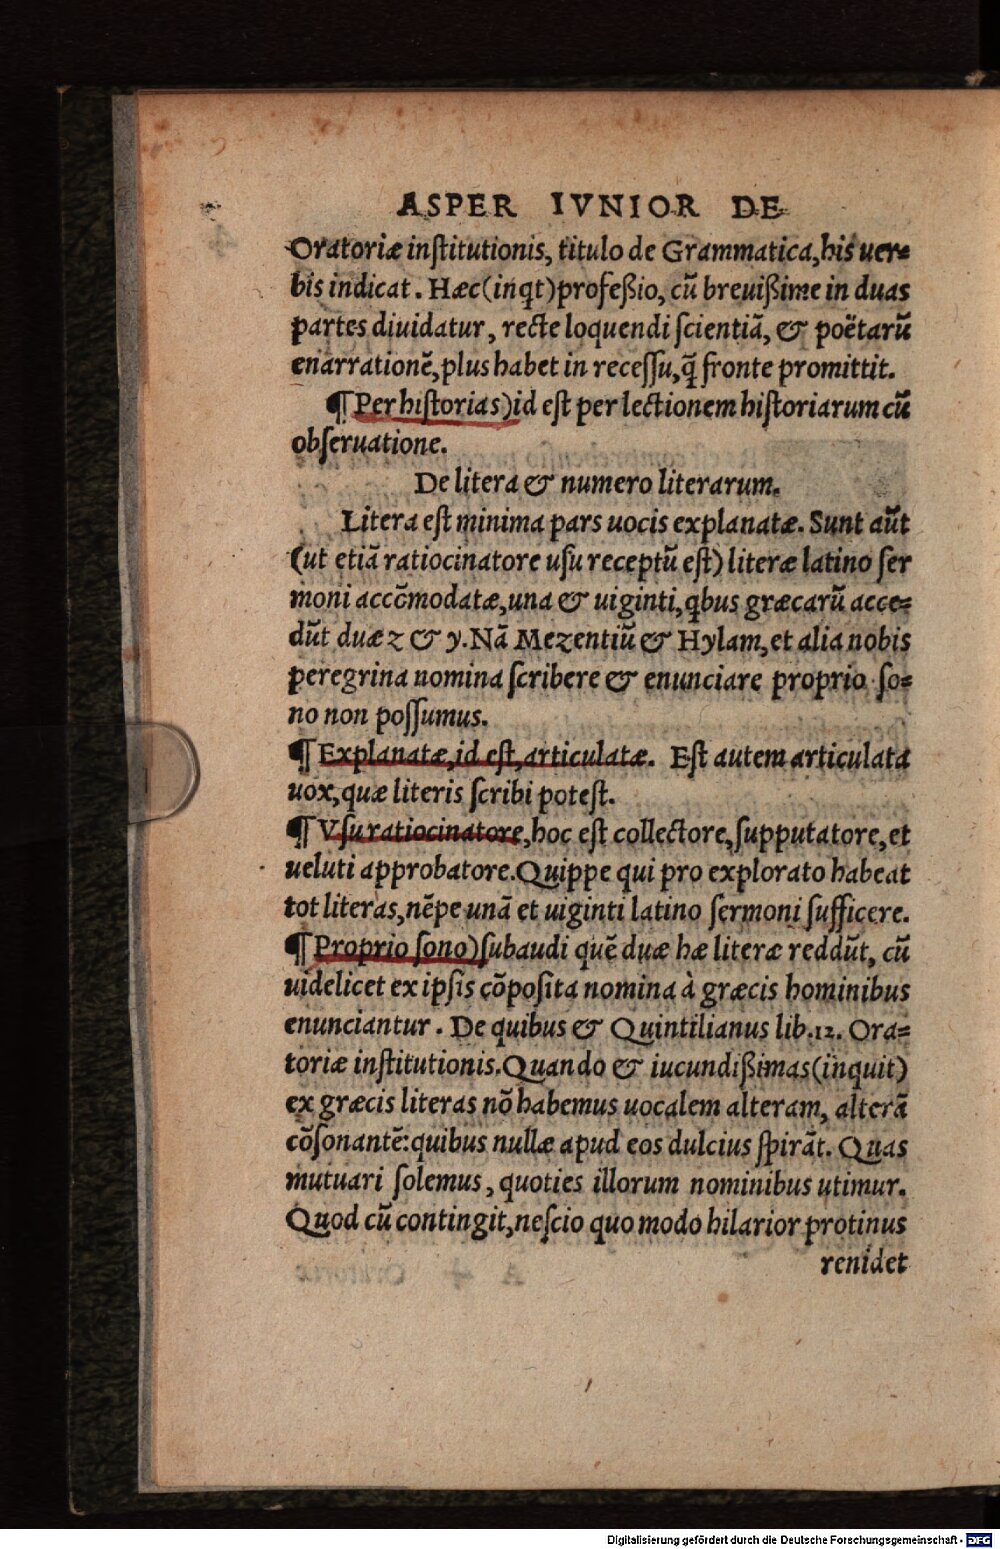 ASPER IVNIOR DE
Oratoriæ inſtitutionis, titulo de Grammatica, his uer=
bis indicat. Hæc (inqt) profeßio, cū breuißime in duas
partes diuidatur, recte loquendi ſcientiā, & poëtarū
enarrationē, plus habet in receſſu, q̄ fronte promittit.
¶ Per hiſtorias) id eſt per lectionem hiſtoriarum cū
obſeruatione.
De litera & numero literarum.
Litera eſt minima pars uocis explanatæ. Sunt aūt
(ut etiā ratiocinatore uſu receptū eſt) literæ latino ſer
moni accōmodatæ, una & uiginti, qbus græcarū acce=
dūt duæ z & y. Nā Mezentiū & Hylam, et alia nobis
peregrina nomina ſcribere & enunciare proprio ſo=
no non poſſumus.
¶ Explanatæ, id eſt, articulatæ. Eſt autem articulata
uox, quæ literis ſcribi poteſt.
¶ Vſu ratiocinatore, hoc eſt collectore, ſupputatore, et
ueluti approbatore. Quippe qui pro explorato habeat
tot literas, nēpe unā et uiginti latino ſermoni ſufficere.
¶ Proprio ſono) ſubaudi quē duæ hæ literæ reddūt, cū
uidelicet ex ipſis cōpoſita nomina à græcis hominibus
enunciantur. De quibus & Quintilianus lib. 12. Ora=
toriæ inſtitutionis. Quando & iucundißimas (inquit)
ex græcis literas nō habemus uocalem alteram, alterā
cōſonantē: quibus nullæ apud eos dulcius ſpirāt. Quas
mutuari ſolemus, quoties illorum nominibus utimur.
Quod cū contingit, neſcio quo modo hilarior protinus
renidet
Digitalisierung gefördert durch die Deutsche Forschungsgemeinschaft - DFG